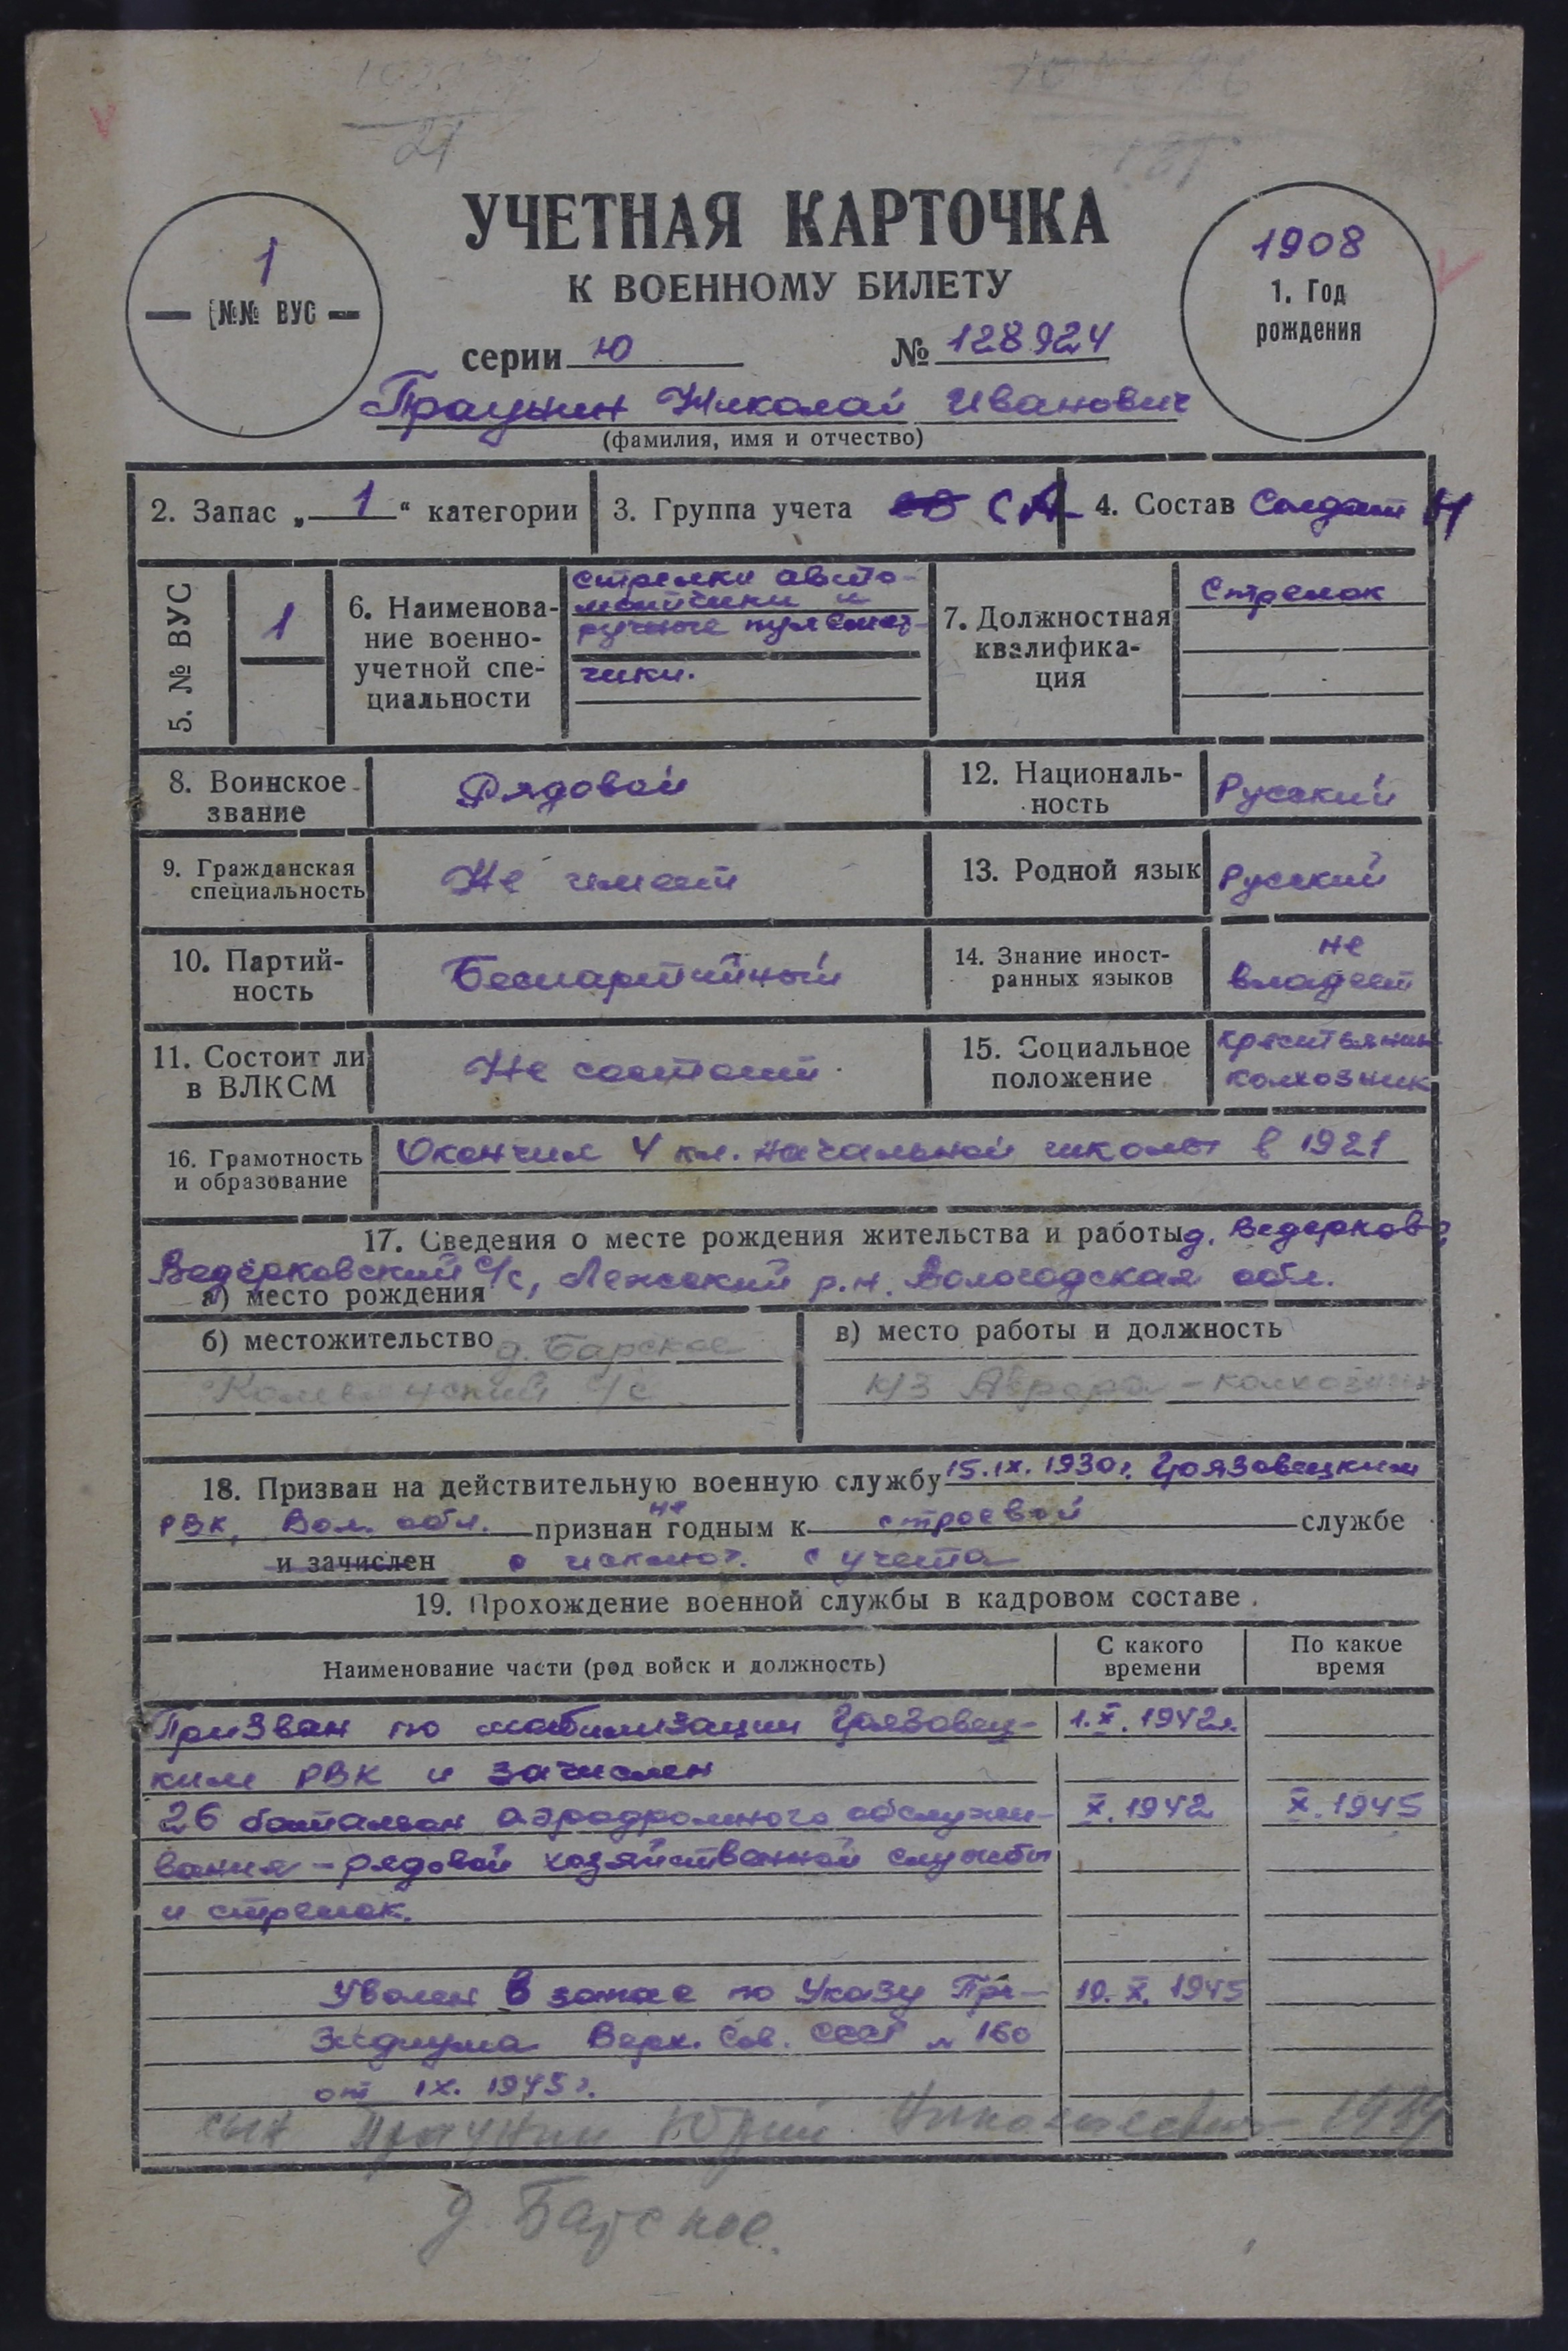 21
УЧЕТНАЯ КАРТОЧКА
К ВОЕННОМУ БИЛЕТУ
1
№№ ВУС
1908
1. Год
рождения
серии Ю № 128924
Праунин Николай Иванович
(фамилия, имя и отчество)
2. Запас „1“ категории
3. Группа учета СА
4. Состав Солдат
5. № ВУС
1
6. Наименова-
ние военно-
учетной спе-
циальности
стрелки авто-
матчики и
ручные пулемет-
чики.
7. Должностная
квалифика-
ция
Стрелок
8. Воинское
звание
Рядовой
12. Националь-
ность
Русский
9. Гражданская
специальность
Не имеет
13. Родной язык
Русский
10. Партий-
ность
Беспартийный
14. Знание иност-
ранных языков
не
владеет
11. Состоит ли
в ВЛКСМ
Не состоит
15. Социальное
положение
крестьянин
колхозник
16. Грамотность
и образование
Окончил 4 кл. начальной школы в 1921
17. Сведения о месте рождения жительства и работы д. Ведерково
Ведёрковский с/с, Лежский р.н. Вологодская обл.
а) место рождения
б) местожительство д. Барское
с/с
в) место работы и должность
к/з Аврора - колхозник
18. Призван на действительную военную службу 15.IX.1930г. Грязовецким
РВК, Вол. обл. признан не годным к строевой службе
и зачислен с учета
19. Прохождение военной службы в кадровом составе.
Наименование части (род войск и должность)
С какого
времени
По какое
время
Призван по мобилизации Грязовец- 1.X.1942г.
ким РВК и зачислен
26 батальон аэродромного обслужи- X.1942 X.1945
вания - рядовой хозяйственной службы
и стрелок.
Уволен в запас по Указу Пре- 10.X.1945
зидиума Верх. Сов. СССР № 160
от IX.1945г.
сын Праунин Юрий Николаевич - 1934
д. Барское.